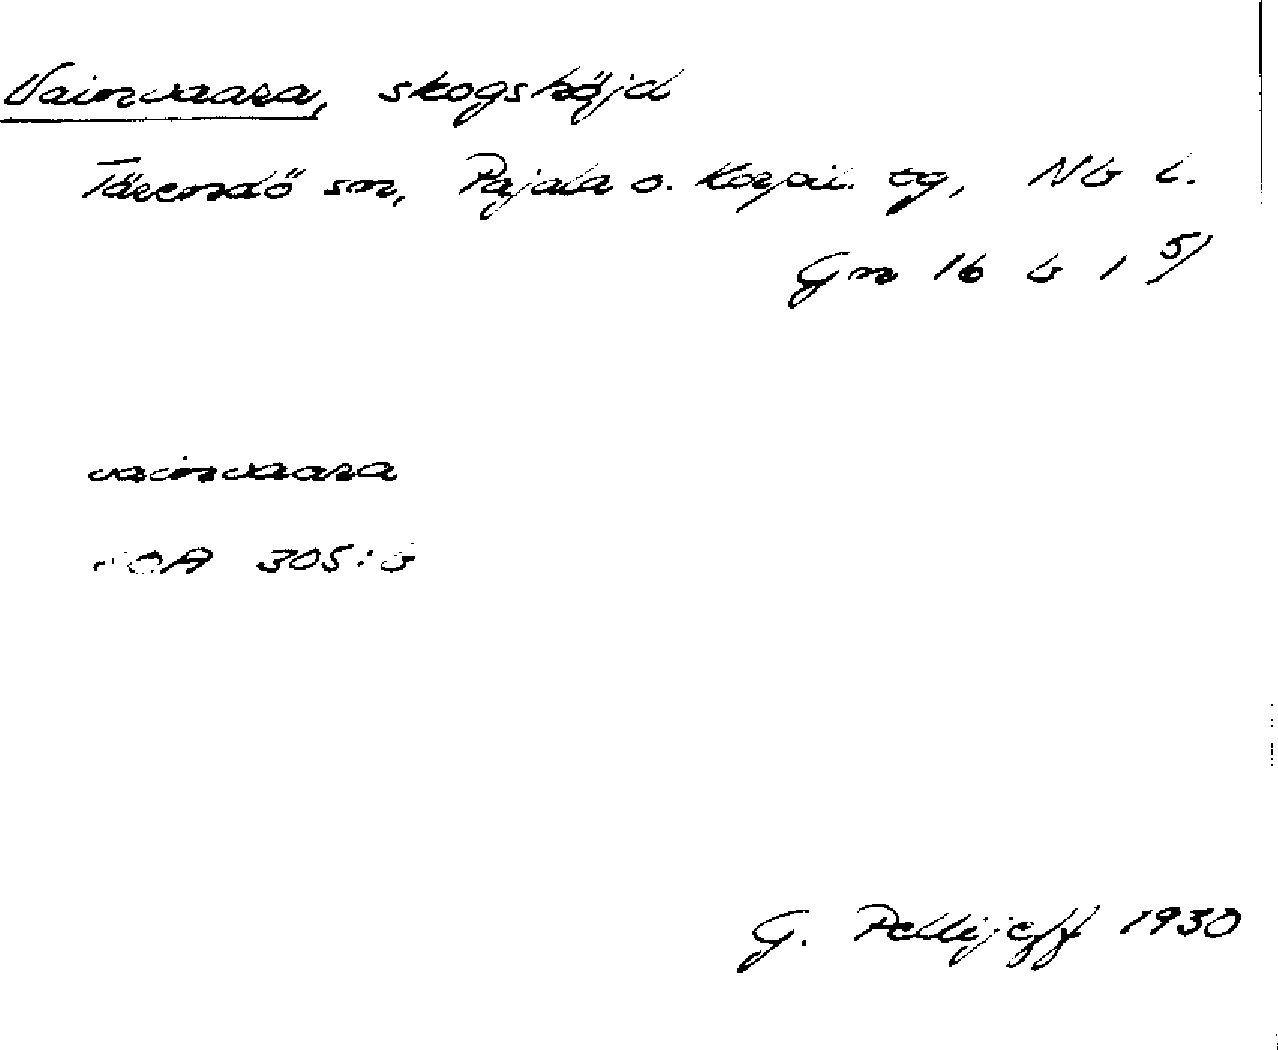 Vainvaara, skogshöjd
Tärendö sn, Pajala o. Korpil. tg, Nb l.
Gm 16 b 1 5/
vainvaara
OA 305:b
G. Pellijeff 1930